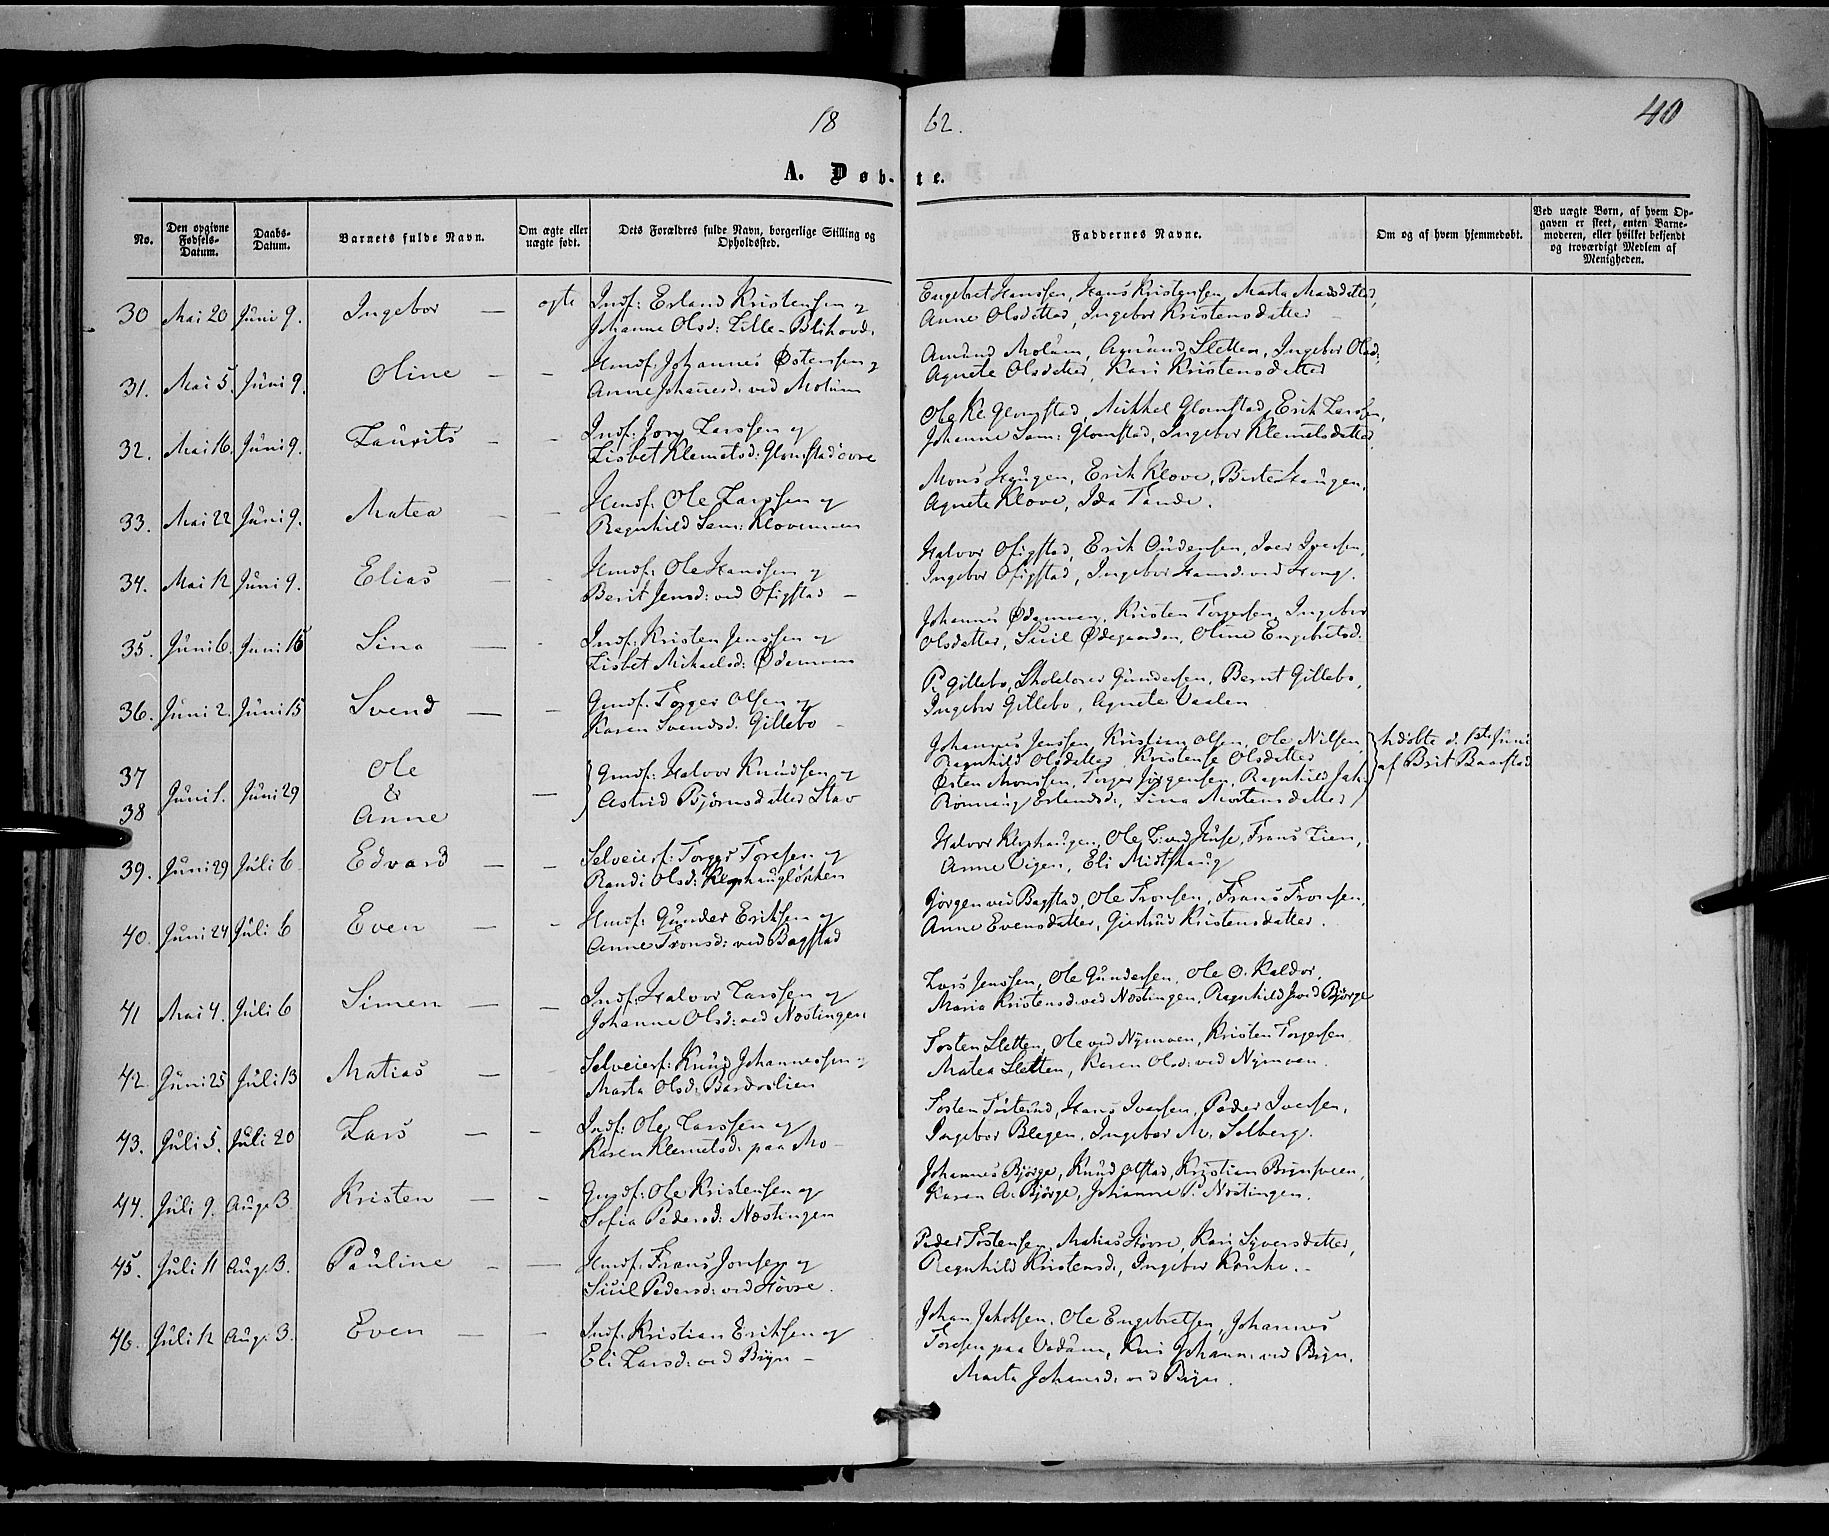 18 62.
40
A. Døb- te.
No.
Den opgivne Fødsels-Datum.
Daabs-Datum.
Barnets fulde Navn.
Om ægte eller uægte født.
Dets Forældres fulde Navn, borgerlige Stilling og Opholdsted.
Faddernes Navne.
Om og af hvem hjemmedøbt.
Ved uægte Børn, af hvem Opgaven er skeet, enten Barnemoderen, eller hvilket bekjendt og troværdigt Medlem af Menigheden.
30 Mai 20 Juni 9. Ingebor — ægte Indf: Erland Kristensen og
Johanne Olsd: Lille-Blihovd.
Engebret Hanssen, Hans Kristensen, Marta Madsdatter,
Anne Olsdatter, Ingebor Kristensdatter
31. Mai 5. Juni 9. Oline - - Husmf: Johannes Østensen og
Anne Johannesd: ved Molum
Amund Molum, Amund Sletten, Ingebor Olsd:
Agnete Olsdatter, Kari Kristensdatter
32. Mai 16. Juni 9. Laurits - - Indf: Jon Larssen og
Lisbet Klemetsd: Glomstad øvre
Ole Kr. Glomstad, Mikkel Glomstad, Erik Larssen,
Johanne Sam: Glomstad, Ingebor Klemetsdatter
33. Mai 22 Juni 9. Matea - - Husmf: Ole Larssen og
Ragnhild Sam: Klovemoen
Mons Haugen, Erik Klove, Birte Haugen,
Agnete Klove, Ida Tande.
34. Mai 12 Juni 9. Elias - - Husmf: Ole Hanssen og
Berit Jensd: ved Ofigstad —
Halvor Ofigstad, Erik Audensen, Iver Iversen,
Ingebor Ofigstad, Ingebor Hansd: ved Haug.
35. Juni 6. Juni 15 Sina — - Indf: Kristen Jenssen og
Lisbet Mikaelsd: Ødemoen
Johannes Ødemoen, Kristen Torgersen, Ingebor
Olsdatter, Siiil Ødegaarden, Oline Engebretsd.
36. Juni 2. Juni 15 Svend — — Gmdf: Torger Olsen og
Karen Svendsd: Gillebo —
P. Gillebo, Skolelærer Gundersen, Bernt Gillebo,
Ingebor Gillebo, Agnete Vaalen
37
38
Juni 1. Juni 29 Ole
&
Anne
— Gmdf: Halvor Knudsen og
Astrid Bjørnsdatter Stav
Johannes Jenssen, Kristian Olsen, Ole Nilsen,
Ragnhild Olsdatter, Kristense Olsdatter
Østen Monssen, Torger Jørgensen, Ragnhild Jak:
Rønnaug Erlandsd:, Sina Mortensdatter
hdøbte d. 1ste Juni
af Brit Baarstad
39. Juni 29 Juli 6 Edvard — — Selveierf: Torger Toresen og
Randi Olsd: Klophaugløkken
Halvor Klophaugen, Ole L: ved Huse, Frans Lien,
Anne Vigen, Eli Midtshaug
40. Juni 24 Juli 6 Even — - Husmf: Gunder Eriksen og
Anne Tronsd: ved Bagstad
Jørgen ved Bagstad, Ole Tronsen, Frans Tronsen,
Anne Evensdatter, Gjertrud Kristensdatter.
41 Mai 4. Juli 6 Simen — — Indf: Halvor Larssen og
Johanne Olsd: ved Næstingen
Lars Jenssen, Ole Gundersen, Ole O. Kaldor,
Maria Kristensd: ved Næstingen, Ragnhild J. ved Bjørge
42. Juni 25 Juli 13 Matias — - Selveierf: Knud Johannessen og
Marta Olsd: Bardoslien
Tosten Sletten, Ole ved Nymoen, Kristen Torgersen
Matea Sletten, Karen Olsd: ved Nymoen.
43. Juli 5. Juli 20 Lars — - Indf: Ole Larssen og
Karen Klemetsd: paa Mo —
Tosten Forsund, Hans Iversen, Peder Iversen,
Ingebor Blegen, Ingebor M. Solberg.
44. Juli 9. Aug. 3 Kristen — - Gmdf: Ole Kristensen og
Sofia Pedersd: Næstingen
Johannes Bjørge, Knud Olstad, Kristian Bynsveen,
Karen A: Bjørge, Johanne P. Næstingen.
45. Juli 11 Aug. 3. Pauline - — Husmf: Frans Jonsen og
Siiil Pedersd: ved Høvre.
Peder Tostensen, Matias Høvre, Kari Syversdatter,
Ragnhild Kristensd:, Ingebor Kruke. -
46. Juli 12 Aug. 3. Even — - Indf: Kristian Eriksen og
Eli Larsd: ved Byn —
Johan Jakobsen, Ole Engebretsen, Johannes
Toresen paa Vedum, Kari Johann: ved Byn,
Marta Johansd: ved Byn.